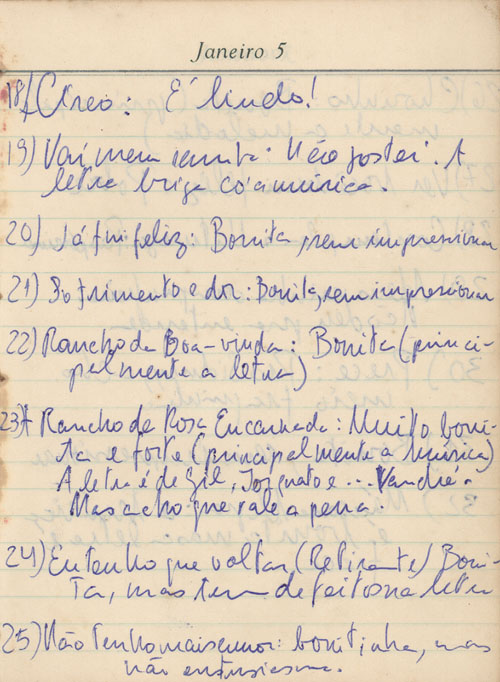 Janeiro 5
18) Cireo: É lindo!
19) Vai, meu samba: Não gostei. A
letra briga co'a música.
20) Já fui feliz: Bonita, sem impressionar
21) Sofrimento e dor: Bonita, sem impressionar
22) Rancho da Boa-vinda: Bonita (princi-
palmente a letra)
23) Rancho da Rosa Encarnada: Muito boni-
ta e forte (principalmente a música)
A letra é de Gil, Torquato e ... Vandré.
Mas acho que vale a pena.
24) Eu tenho que voltar (Retirante) Boni-
ta, mas tem defeitos na letra
25) Não tenho mais amor: bonitinha, mas
não entusiasma.